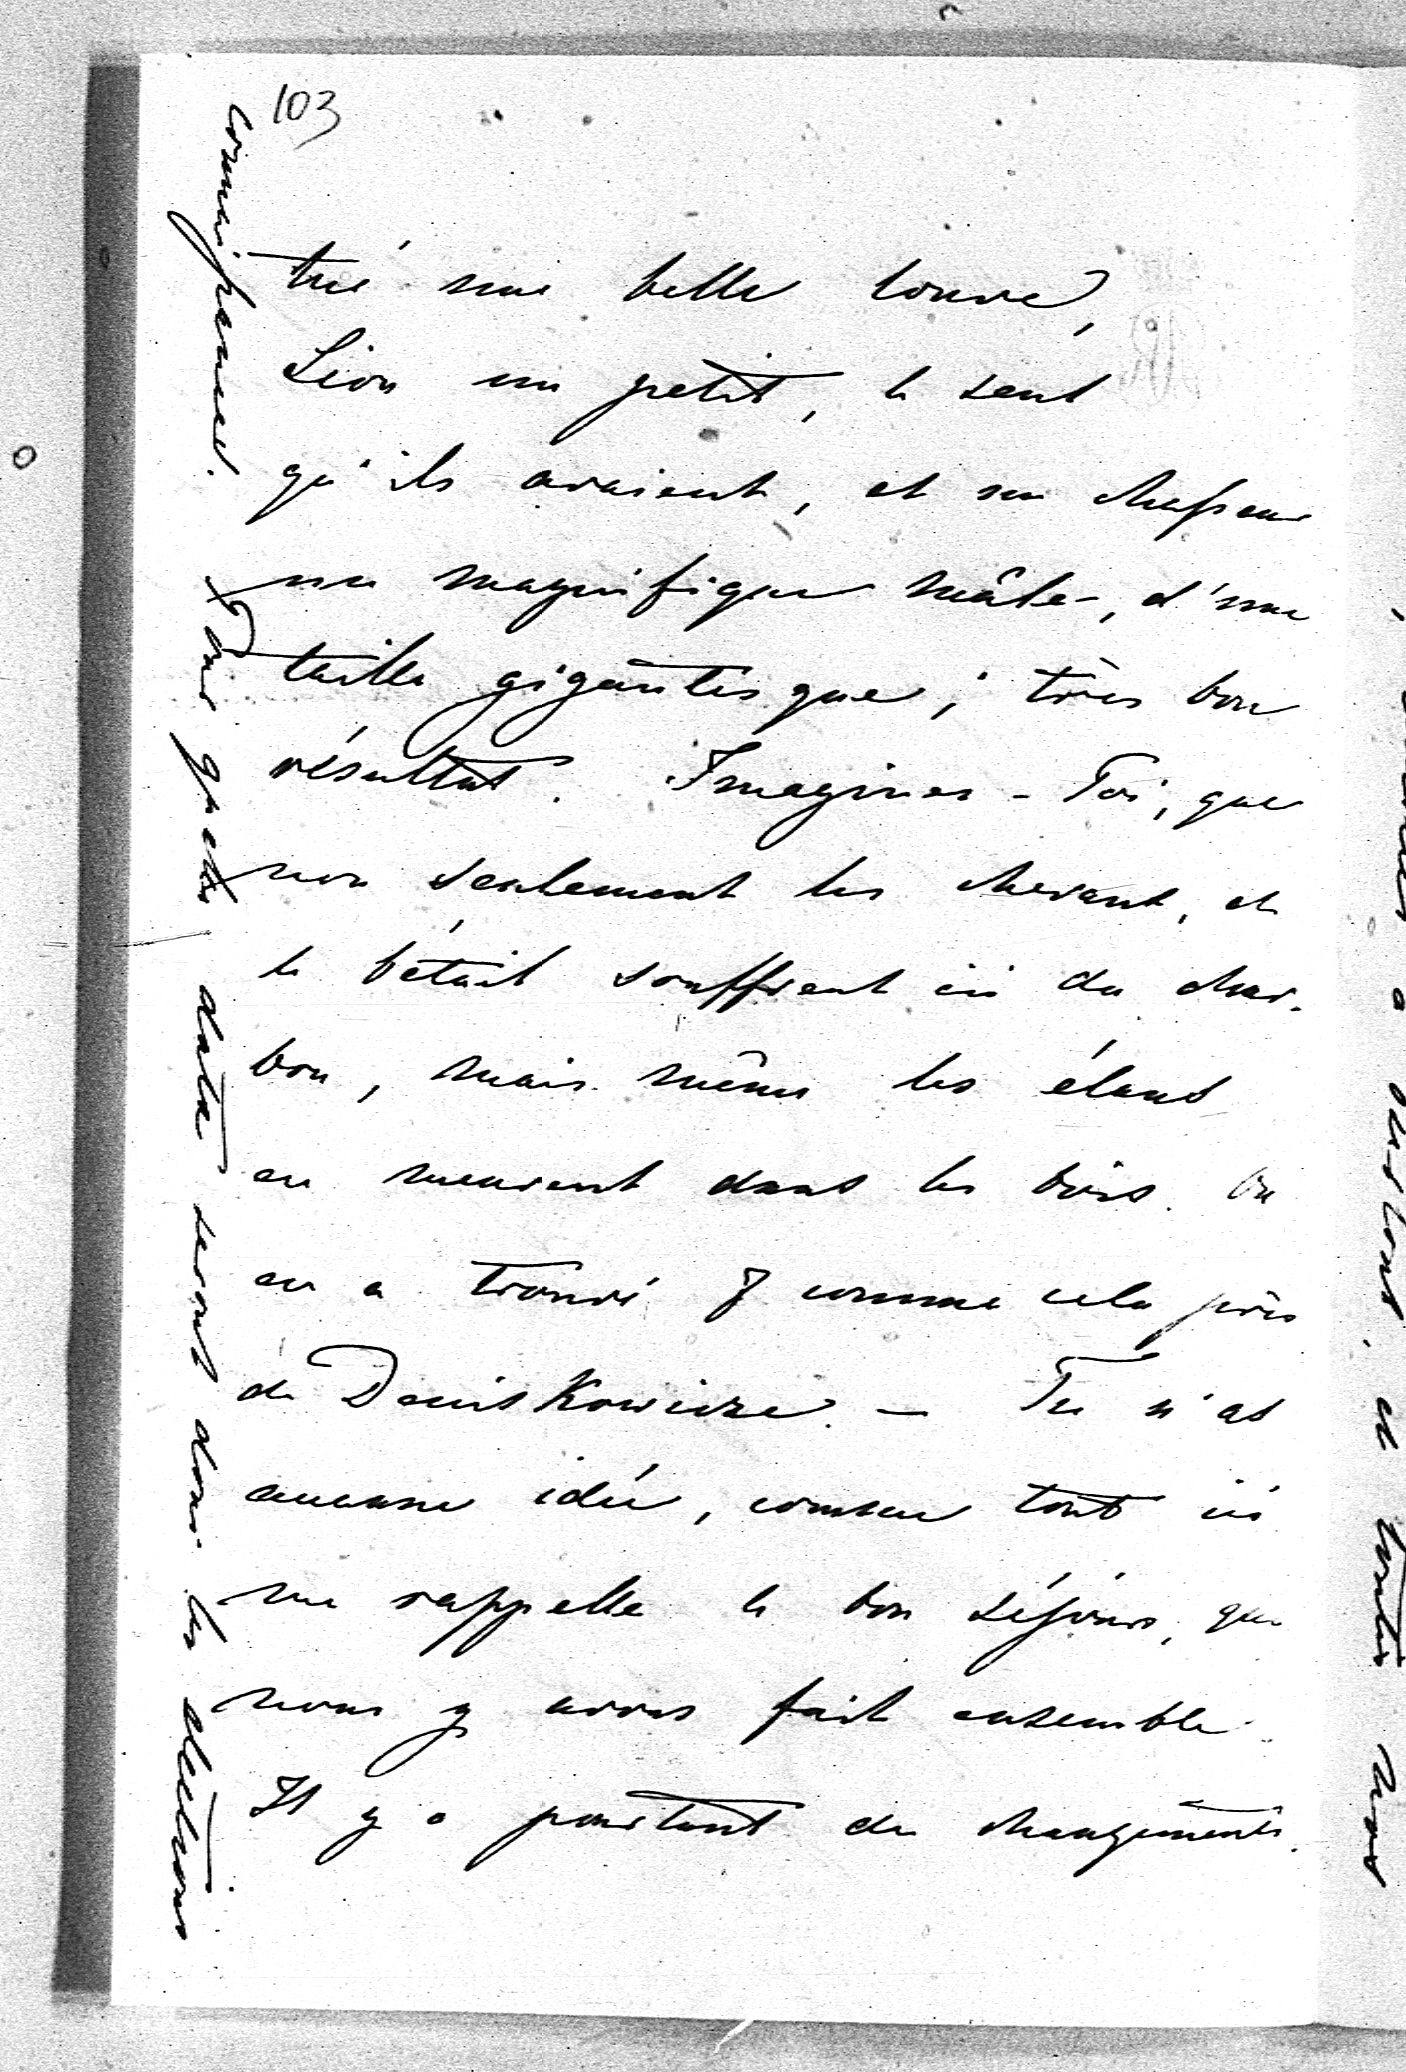 103
tué une belle louve,
Léon un petit, le seul
qu'ils avaient, et un chasseur
un magnifique mâle, d'une
taille gigantesque; très bon
résultat. Imagines-Toi, que
non seulement les chevaux, et
le bétail souffrent ici du char-
bon, mais même les élans
en meurent dans les bois. On
en a trouvé 7 comme cela près
de Deniskowicze. — Tu n'as
aucune idée, comme tout ici
me rappelle le bon séjour, que
nous y avons fait ensemble.
Il y a pourtant du changements.
Pour quelle date seront donc les élections